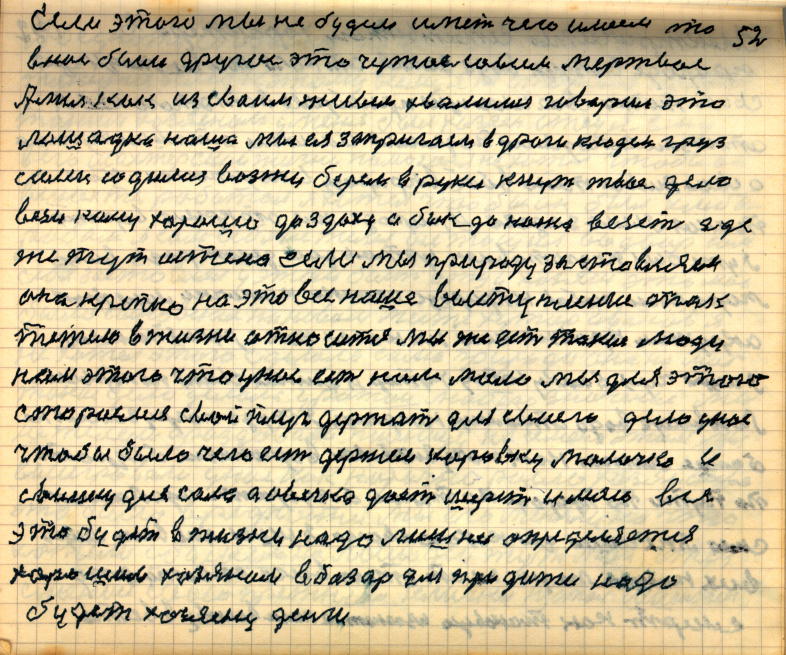 Если этого мы не будем имет чего имеем то 52
вное были другие это чужое ловим мертвое
как из своим живым хвалимся говорим это
лошадка наша мы ея запригаем в дроги кладем груз
сами содимся возжи берем в руки кнут твое дело
вези кому хорошо до здоху а бык до ножа везет а где
же тут истена если мы природу заставляем
она крепко на это все наше выступление так
тежело в жизни относится мы же ест такие люди
нам этого что уное ест нам мало мы для этого
стораемся свой плуг держат для своего дело уное
чтобы было чего ест держем коровку молочко и
свинку для сала а овечка дает шерст и мясо вся
это будет в жизни надо лиш ни определятся
хорошим хозяном в базар для продажи надо
будет хозяену денги